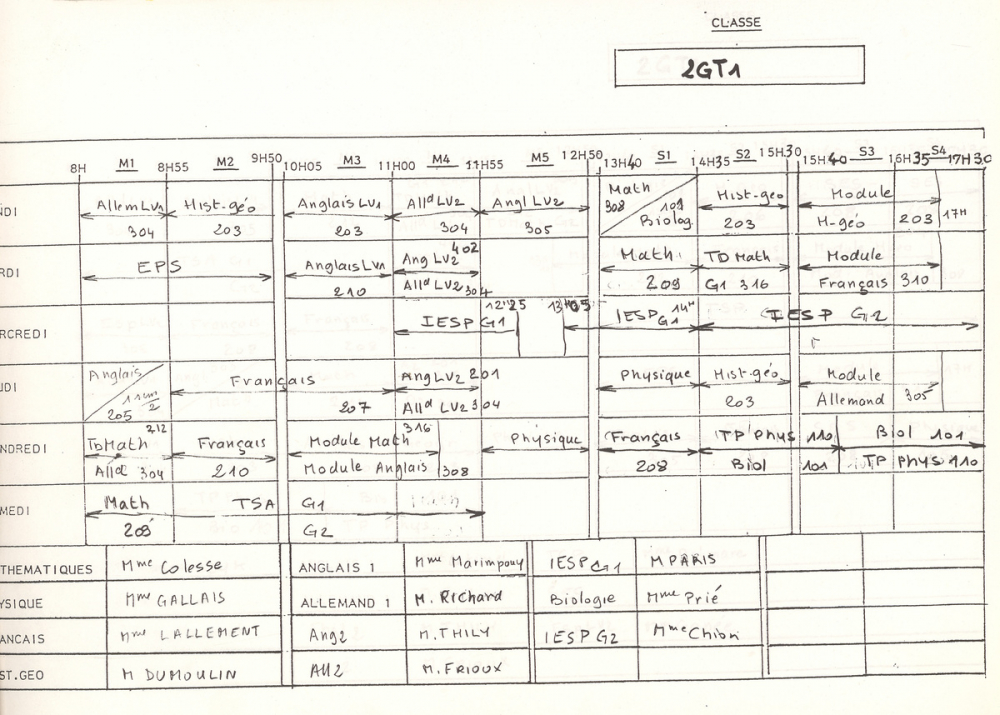 CLASSE
2GT1
8H M1 8H55 M2 9H50 10H05 M3 11H00 M4 11H55 M5 12H50 13H40 S1 14H35 S2 15H30 15H40 S3 16H35 S4 17H30
NDI AllemLV1 Hist-géo Anglais LV1 Allᵈ LV2 Angl LV2 Math Hist-géo Module
304 203 203 304 305 308 109 Biolog. 203 H-géo 203 17H
RDI EPS Anglais LV1 Ang LV2 402 Math. TD Math Module
210 Allᵈ LV2 304 209 G1 316 Français 310
12H25
CREDI IESP G1 IESP G1 14H IESP G2
UDI Anglais Français Ang LV2 201 Physique Hist-géo Module
205 207 Allᵈ LV2 304 203 Allemand 305
NDREDI TDMath 212 Français Module Math 316 Physique Français TP Phys 110 Biol 101
Allᵈ 304 210 Module Anglais 308 208 Biol 101 TP Phys 110
MEDI Math TSA G1
209 G2
THEMATIQUES Mme Colesse ANGLAIS 1 Mme Marimpouy IESP G1 M PARIS
YSIQUE Mme GALLAIS ALLEMAND 1 M. Richard Biologie Mme Prié
ANCAIS Mme LALLEMENT Ang2 M. THILY IESP G2 Mme Chion
ST.GEO M DUMOULIN All2 M. FRIOUX